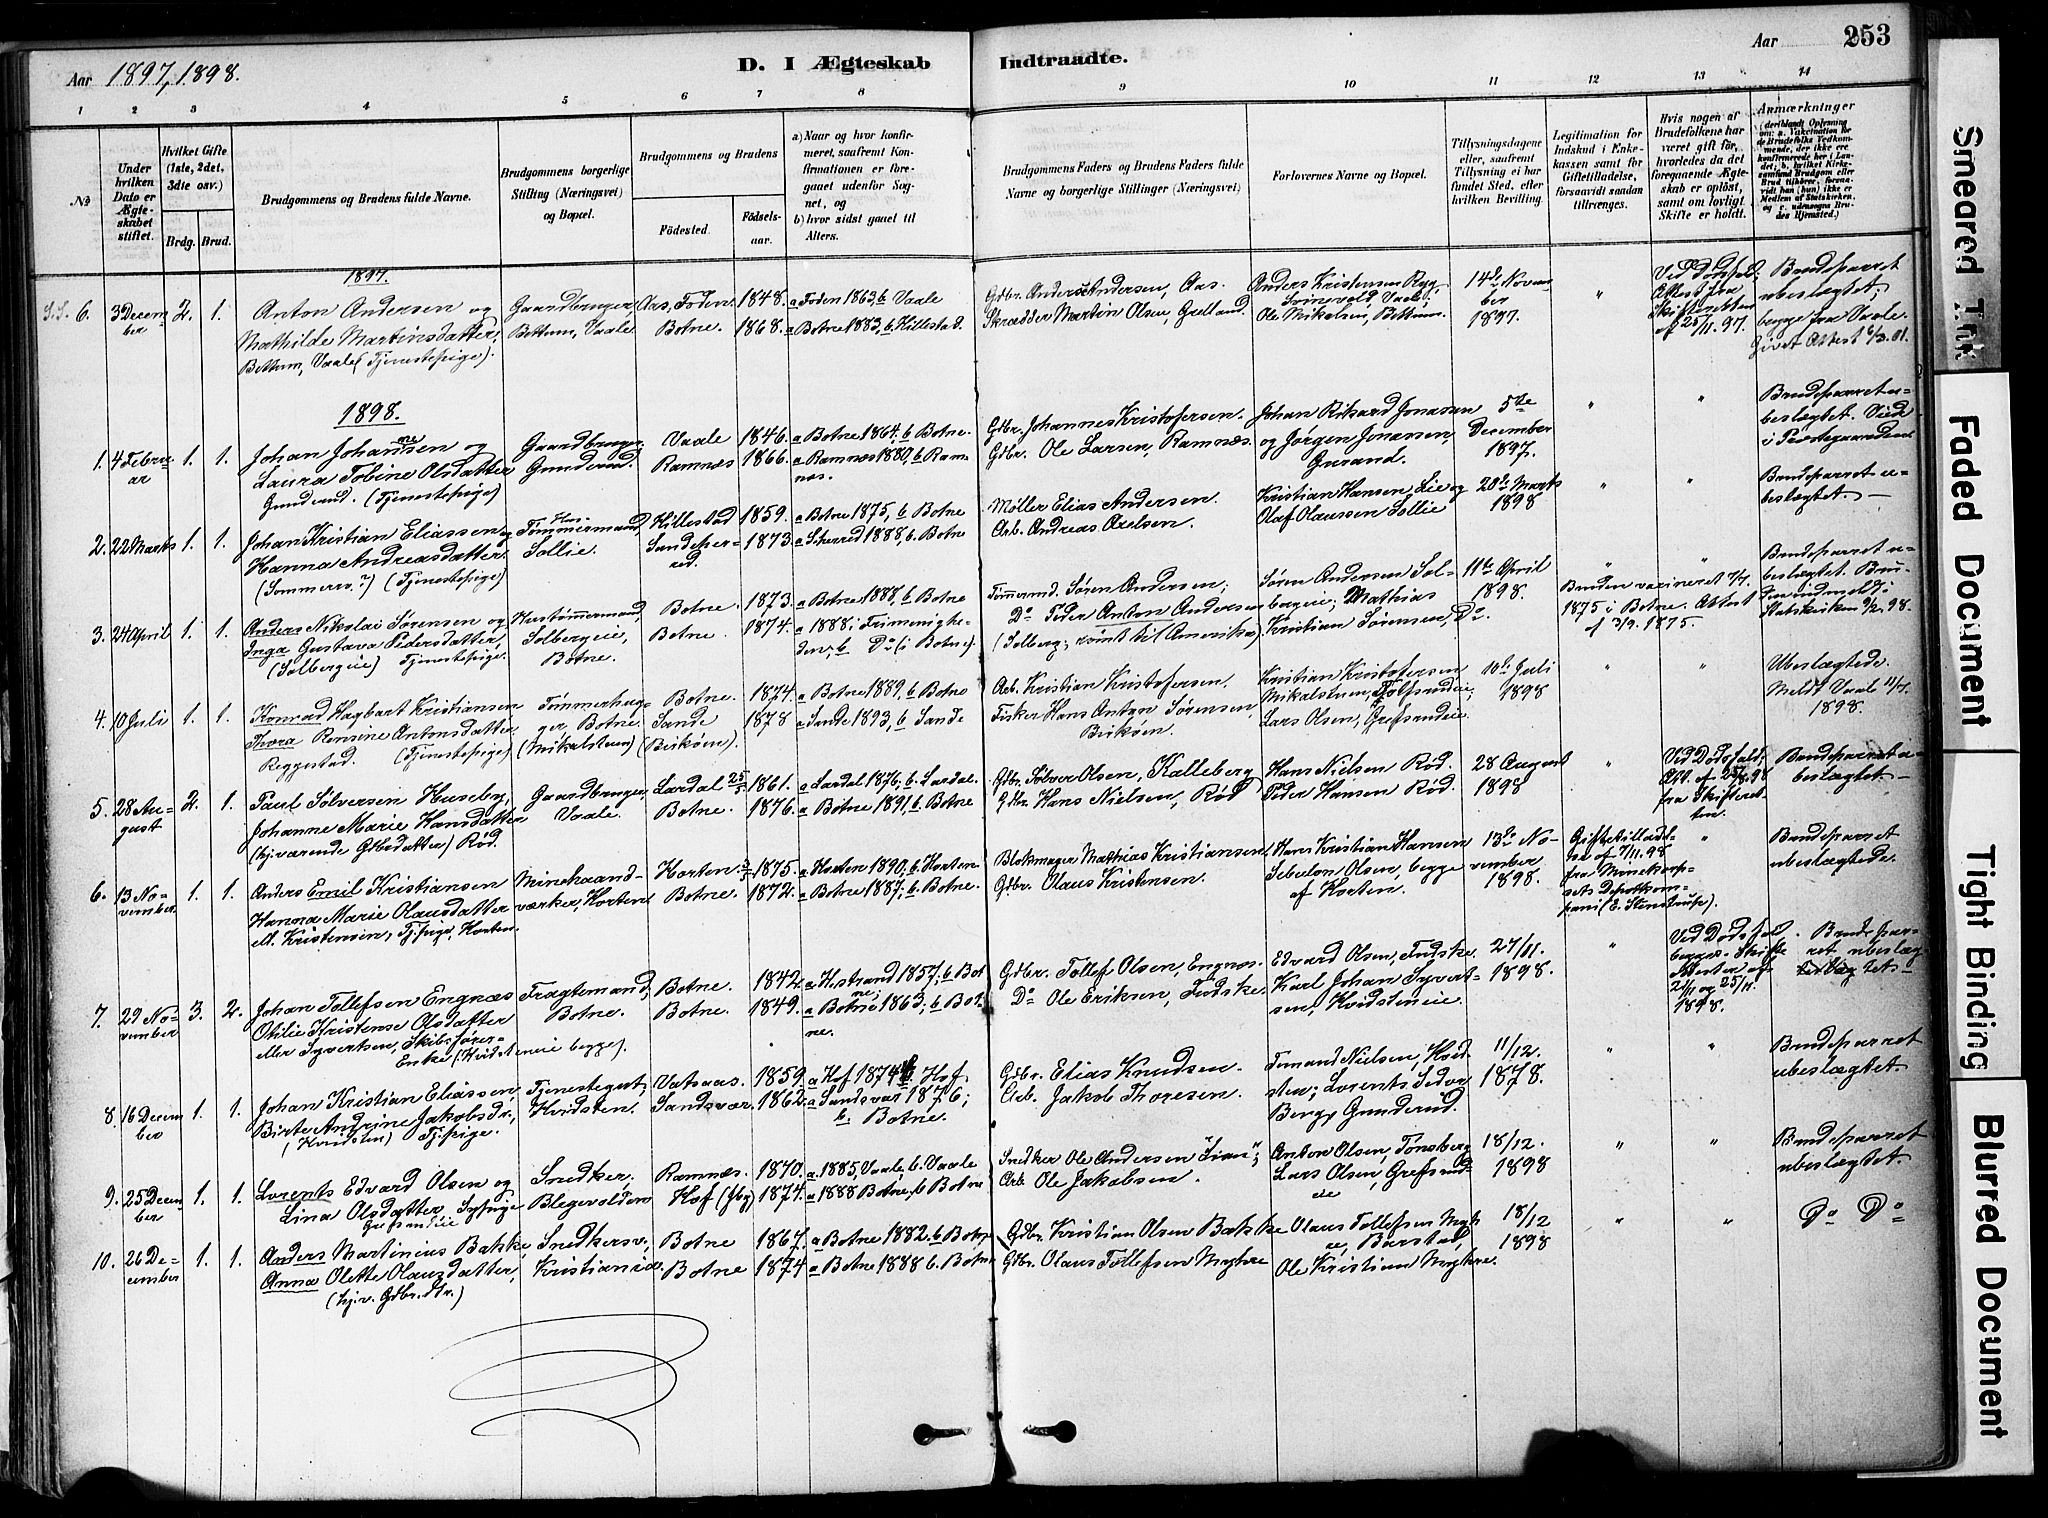 Aar 1897, 1898.
D. I Ægteskab Indtraadte.
Aar 253
1 2 3 4 5 6 7 8 9 10 11 12 13 14
No
Under hvilken Dato er Ægteskabet stiftet.
Hvilket Gifte (1ste, 2det, 3die osv.)
Brdg. Brud.
Brudgommens og Brudens fulde Navne.
Brudgommens borgerlige Stilling (Næringsvei) og Bopæl.
Brudgommens og Brudens
Fødested. Fødsels-aar.
a) Naar og hvor konfirmeret, saafremt Konfirmationen er foregaaet udenfor Sognet, og
b) hvor sidst gaaet til Alters.
Brudgommens Faders og Brudens Faders fulde Navne og borgerlige Stillinger (Næringsvei)
Forlovernes Navne og Bopæl.
Tillysningsdagene eller, saafremt Tillysning ei har fundet Sted, efter hvilken Bevilling.
Legitimation for Indskud i Enkekassen samt for Giftetilladelse, forsaavidt saadan tiltrænges.
Hvis nogen af Brudefolkene har været gift før, hvorledes da det foregaaende Ægteskab er opløst, samt om lovligt Skifte er holdt.
Anmærkninger
1897.
S.S. 6. 3 December 2. 1. Anton Andersen og Gaardbruger, Aas, Foden. 1848. a Foden 1863, b Vaale Gdbr. Anders Andersen, Aas. Anders Kristensen Ryg 14de November 1897. " Ved Dødsfald; Attest fra Skifteretten af 25/11. 97. Brudeparret ubeslægtet; begge fra Vaale. Givet Attest 6/3. 01.
Mathilde Martinsdatter, Bettum, Vaale Botne. 1868. a Botne 1883, b Hillestad. Skrædder Martin Olsen, Ole Mikalsen, Bettum.
Bettum, Vaale (Tjenestepige).
1898.
1. 4 Februar 1. 1. Johan Johannesen og Gaardbruger, Vaale 1846. a Botne 1864, b Botne. Gdbr. Johannes Kristofersen. Johan Rikard Jonassen 5te December 1897. " " Brudeparret ubeslægtet. Viede i Prestegaarden.
Laura Tobine Olsdatter Gunderud. Ramnæs 1866. a Ramnæs 1880, b Ramnæs. Gdbr. Ole Larsen, Ramnæs. og Jørgen Jonassen,
(Tjenestepige)
2. 22 Marts 1. 1. Johan Kristian Eliassen og Hustømmermand, Hillestad 1859. a Botne 1875, b Botne Møller Elias Andersen. Kristian Hansen Lie og 20de Marts 1898 " " Brudeparret ubeslægtet.
Hanna Andreasdatter Sollie. Sandeherred. 1873. 1888, b. Botne Arb. Andreas Axelsen. Olaf Olaussen Sollie
(Sommersv.?) (Tjenestepige)
3. 24 April 1. 1. Anders Nikolai Sørensen og Hustømmermand, Botne. 1873. a Botne 1888, b Botne Tømmerm. Søren Andersen; Søren Andersen Solbergeie; Mathias 11te April 1898. Bruden vaccineret 7/7. 1875 i Botne. Attest af 3/9. 1875. " Brudeparret ubeslægtet. Bruden udmeldt Statskirken 9/2. 98.
Inga Gustava Pedersdatter, Solbergeie, Botne. Botne. 1874. a 1888 i Frimenigheden, b Do (i Botne). Do Peder Anton Andersen Kristian Sørensen, Do.
(Solbergeie) Tjenestepige. (Solberg; rømt til Amerika)
4. 10 Juli 1. 1. Konrad Hagbart Kristiansen Tømmerhugger, Botne. Botne. 1874. a Botne 1889, b Botne Arb. Kristian Kristofersen. Kristian Kristofersen, 10de Juli 1898 " " Ubeslægtede. Meldt Vaale 11/7. 1898.
Thora Rensine Antonsdatter (Mikalsteen) Sande (Birkøen). 1878 a Sande 1893, b Sande Fisker Hans Anton Sørensen, Birkøen. Lars Olsen, Grefsrudeie.
Reggestad. (Tjenestepige)
5. 28 August 2. 1. Paul Sølversen Huseby, Gaardbruger, Vaale. Lardal 25/5 1861. a Lardal 1876, b. Lardal. Gdbr. Sølver Olsen, Kalleberg Hans Nielsen Rød. 28 August 1898 " Ved Dødsfald; Att. fra Skifteretten. Brudeparret ubeslægtet.
Johanne Marie Hansdatter Botne. 1876. a Botne 1891, b Botne Gdbr. Hans Nielsen, Rød Peder Hansen Rød.
(hj.værende Gbrdatter) Rød.
6. 13 November 1. 1. Anders Emil Kristiansen Minehaandværker, Horten Horten 1875. a Horten 1890, b Horten Blokmager Mathias Kristiansen Hans Kristian Hansen 13de November 1898. Giftetilladelse af 7/11. 98 fra Minekorpsets Depotkompani (E. Stenstrup). " Brudeparret ubeslægtede.
Hanna Marie Olausdatter Botne. 1872. a Botne 1887, b Botne. Gdbr. Olaus Kristensen. Sebulon Olsen, begge af Horten.
ell. Kristensen, Tj.pige, Horten.
7. 29 November 3. 2. Johan Tollefsen Engnæs Fragtemand, Botne. Botne. 1842. a H.strand 1857, b Botne; Gdbr. Tollef Olsen, Engnæs. Edvard Olsen, Fudske 27/11. 1898. " Ved Dødsfald begge. Skifteattester af 21/11 og 25/11. 1898. Brudeparret ubeslægtet
Otilie Kristense Olsdatter Botne. 1849. a Botne 1863, b Botne. Do Ole Eriksen, Fudske Karl Johan Syvertsen, Hvidsteneie.
eller Syvertsen, Skibsfører-Enke (Hvidsteneie begge).
8. 16 December 1. 1. Johan Kristian Eliassen, Tjenestegut, Hvidsten. Vatsaas. 1859. a Hof 1874 b Hof Gdbr. Elias Knudsen. Nielsen, Hvidsten; Lorents 11/12. 1878. " " Brudeparret ubeslægtet.
Birte Andrine Jakobsdr., Sandsvær. 1862. a Sandsvær 1876; b. Botne. Arb. Jakob Thoresen. Berg, Gunderud.
(Hvidsten) Tj.pige.
9. 25 December 1. 1. Lorents Edvard Olsen og Snedker. Blegevolden Ramnæs. 1870. a. 1885, Vaale, b. Vaale Snedker Ole Andersen "Lian"; Anton Olsen, Tønsberg 18/12. 1898 " " Brudeparret ubeslægtet.
Lina Olsdatter, Sypige Hof (Jbg) 1874. a 1888 Botne, b Botne Arb. Ole Jakobsen. Lars Olsen, Grefsrudeie
Grefsrudeie
10. 26 December 1. 1. Anders Martinius Bakke, Snedkersv., Kristiania. Botne 1867. a Botne 1882. b Botne Gdbr. Kristian Olsen Bakke Olaus Tollefsen Myhre, Barstad, 18/12 1898 " " Do Do
Anna Olette Olausdatter, Botne 1874 a Botne 1888 b. Botne Gdbr. Olaus Tollefsen Myhre Ole Kristian Myhre.
(hj.v. Gdbr. dtr.)
Smeared Ink
Faded Document
Tight Binding
Blurred Document